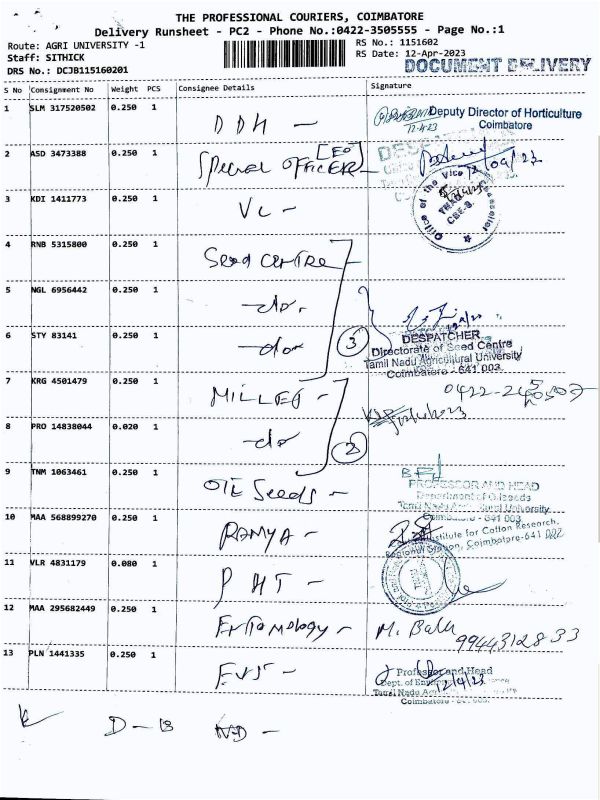 THE PROFESSIONAL COURIERS, COIMBATORE
Delivery Runsheet - PC2 - Phone No.:0422-3505555 - Page No.:1
Route: AGRI UNIVERSITY -1
RS No.: 1151602
Staff: SITHICK
RS Date: 12-Apr-2023
DRS No.: DCJB115160201
DOCUMENT DELIVERY
S No Consignment No Weight PCS Consignee Details Signature
1 SLM 317520502 0.250 1 DDH -
Deputy Director of Horticulture
Coimbatore
12.4.23
2 ASD 3473388 0.250 1 Special OFFICER [EO]
3 KDI 1411773 0.250 1 VC -
Office of the Vice
TNAU
CBE-3.
4 RNB 5315800 0.250 1 Seed CENTRE
5 NGL 6956442 0.250 1 -do-
6 STY 83141 0.250 1 -do- 3
DESPATCHER
Directorate of Seed Centre
Tamil Nadu Agricultural University
Coimbatore - 641 003.
7 KRG 4501479 0.250 1 MILLET -
8 PRO 14838044 0.020 1 -do- 2
9 TNM 1063461 0.250 1 Seeds -
PROFESSOR AND HEAD
Department of Oilseeds
Coimbatore - 641 003.
10 MAA 568899270 0.250 1 RAMYA -
Institute for Cotton Research,
Regional Station, Coimbatore-641
11 VLR 4831179 0.080 1 PHT -
12 MAA 295682449 0.250 1 Entomology - M. Balu 9944312833
13 PLN 1441335 0.250 1
Professor and Head
12/4/23
Coimbatore - 641 003.
D - 13